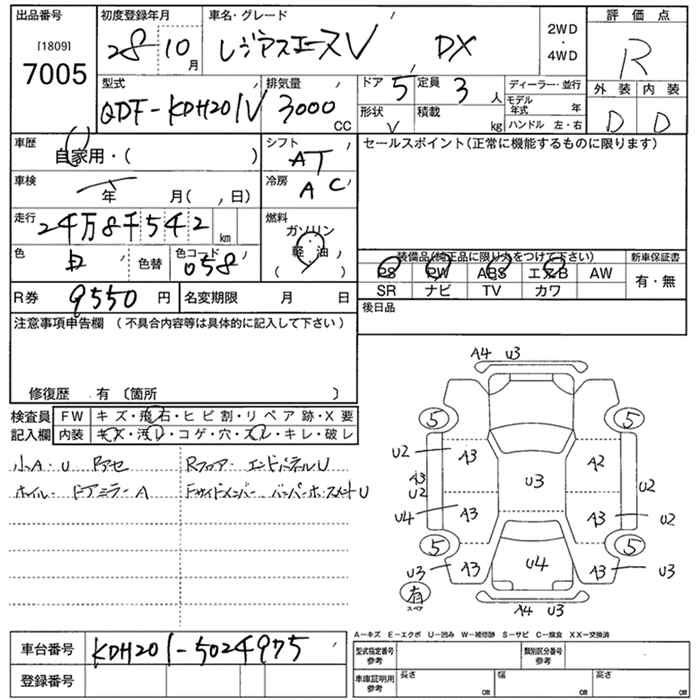 出品番号 初度登録年月 車名・グレード 評価点
[1809]
7005 28 10月 レジアスエースV DX 2WD・4WD R
型式 排気量 ドア 定員 ディーラー・並行 外装 内装
QDF-KDH201V 3000CC 5 3人 モデル年式 年 D D
形状 V 積載 kg ハンドル 左・右
車歴 自家用・( ) シフト AT セールスポイント(正常に機能するものに限ります)
車検 年 月( , 日) 冷房 AC
走行 24万8千542km 燃料 ガソリン
軽油
( )
色 白 色替 色コード 058 装備品(純正品に限り丸をつけて下さい) 新車保証書
PS PW ABS エアB AW 有・無
SR ナビ TV カワ
R券 9550円 名変期限 月 日 後日品
注意事項申告欄 (不具合内容等は具体的に記入して下さい)
修復歴 有 〔箇所 〕
検査員 FW キズ・飛石・ヒビ割・リペア跡・X要
記入欄 内装 キズ・汚レ・コゲ・穴・スレ・キレ・破レ
小A・U Rフロアー エンドパネルU
ホイル・ドアミラーA Fサイドメンバー バンパーホースメントU
A4 U3
5 5
U2 A3 A2
A3 U2 U3 U2
U4 A3 A3 U2
5 5
U3 A3 U4 A3 U3
有
スペア
A4 U3
A－キズ E－エクボ U－凹み W－補修跡 S－サビ C－腐食 XX－交換済
車台番号 KDH201-5024975 型式指定番号 参考 類別区分番号 参考
登録番号 車庫証明用 参考 長さ cm 幅 cm 高さ cm